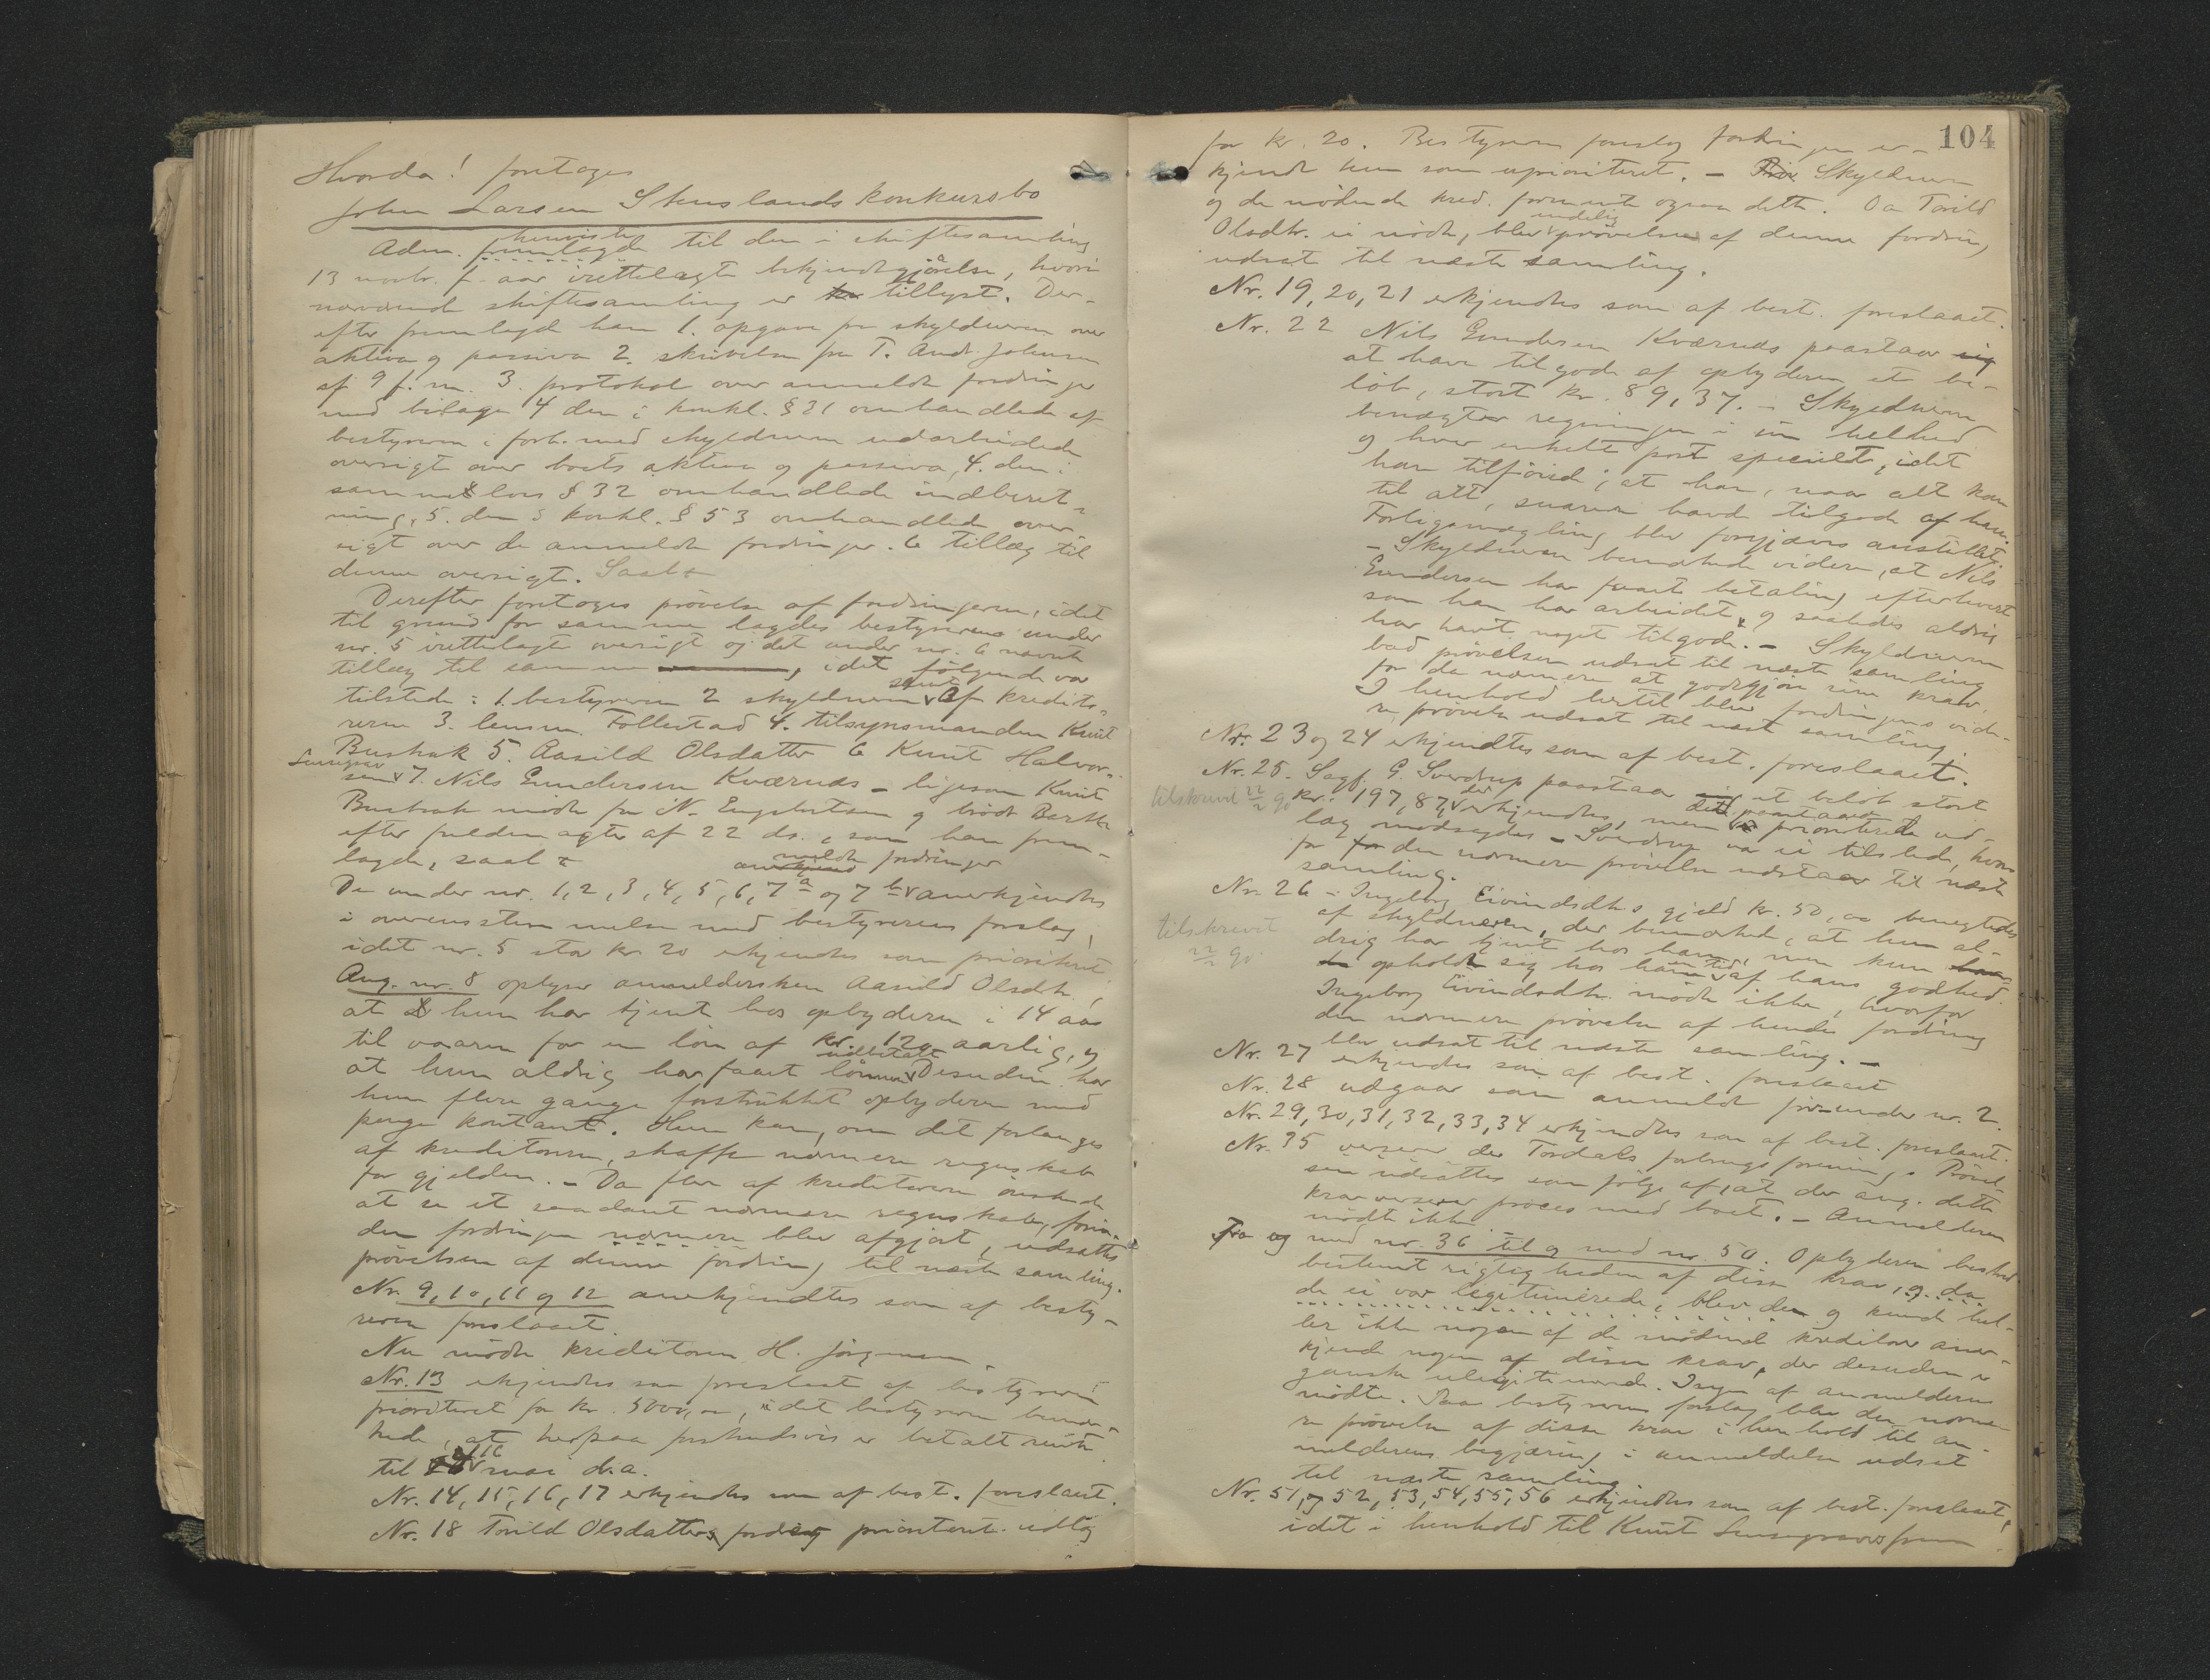 Hvorda! foretoges
John Larsen Stenslands konkursbo
henviste
Adm. fremlagde til den i skiftesamling
13 novbr. f. aar irettelagte bekjendtgjörelse, hvori
nærværende skiftesamling er tillyst. Der-
efter fremlagde han 1. opgave fra skyldneren over
aktiva og passiva 2. skrivelse fra T. Andr. Johnsen
af 9 f. m. 3. protokol over anmeldte fordringer
med bilage 4 den i konkl. § 21 omhandlede af
bestyreren i forb. med skyldneren udarbeidede
oversigt over boets aktiva og passiva, 4. den i
samme lovs § 32 omhandlede indberet-
ning, 5. den i konkl. § 53 omhandlede over-
sigt over de anmeldte fordringer. 6 tillæg til
denne oversigt. Saal
Derefter foretoges prövelse af fordringerne, idet
til grund for samme lagdes bestyrerens under
nr. 5 irettelagte oversigt og det under nr. 6 nævnte
tillæg til samme, idet fölgende var
tilstede: 1. bestyreren 2 skyldneren samt af kredito-
rerne 3. lensm. Follestad 4. tilsynsmanden Knut
Bushak 5. Aasild Olsdatter 6 Knut Halvor-
sen 7. Nils Gundersen Kværnds - ligesom Knut
Bushak mödte for N. Engebretsen og brödr. Berthe
efter fuldmagter af 22 ds., som han frem-
lagde, saal
anmeldte fordringer
De under nr. 1, 2, 3, 4, 5, 6, 7 a og 7 b anerkjendtes
i overensstemmelse med bestyrerens forslag,
idet nr. 5 stor kr. 20 erkjendtes som prioriteret
Ang. nr. 8 oplyser anmeldersken Aasild Olsdtr.,
at hun har tjent hos opbyderen i 14 aar
til vaaren for en lön af kr. 120 aarlig, og
at hun aldrig har faaet lönnen udbetalt. Desuden har
hun flere gange forstrukket opbyderen med
penge kontant. Hun kan, om det forlanges
af kreditorerne, skaffe nærmere regnskab
for gjelden. - Da flere af kreditorerne önskede
at se et saadant nærmere regnskab, förin-
den fordringen nærmere blev afgjort, udsattes
prövelsen af denne fordring til næste samling.
Nr. 9, 10, 11 og 12 anerkjendtes som af besty-
reren foreslaaet.
Nu mödte kreditoren H. Jörgensen.
Nr. 13 erkjendtes som foreslaaet af bestyreren
prioriteret for kr. 5000,00, idet bestyreren bemær-
kede, at herpaa forskudsvis er betalt rente
til 16 mai d.a.
Nr. 14, 15, 16, 17 erkjendtes som af best. foreslaaet.
Nr. 18 Torild Olsdatters fordring prioriteret udlæg
104
for kr. 20. Bestyreren foreslog fordringen er-
kjendt kun som uprioriteret. - Skyldneren
og de mödende kred. formente ogsaa dette. Da Torild
Olsdtr. ei mödte, blev endelig prövelse af denne fordring
udsat til næste samling.
Nr. 19, 20, 21 erkjendtes som af best. foreslaaet.
Nr. 22 Nils Gundersen Kværnds paastaar
at have tilgode af opbyderen et be-
löb, stort kr. 89,37. - Skyldneren
benægter regningen i sin helhed
og hver enkelt post specielt, idet
han tilföied, at han, naar alt kom
til alt, snarere havde tilgode af ham.
Forligsmægling blev forgjæves anstillet.
- Skyldneren bemærkede videre, at Nils
Gundersen har faaet betaling efterhvert
som han har arbeidet, og saaledes aldrig
har havt noget tilgode. - Skyldneren
bad prövelsen udsat til næste samling
for da nærmere at godtgjöre sine krav.
I henhold hertil blev fordringens vide-
re prövelse udsat til næste samling.
Nr. 23 og 24 erkjendtes som af best. foreslaaet.
Nr. 25. Sagf. G. Sverdrup paastaar et belöb stort
tilskrevet 22/2 90
kr. 197,87, der erkjendtes, men det paastaaede prioriterede ud-
læg modsagdes - Sverdrup var ei tilstede, hvor-
for den nærmere prövelse udstaar til næste
samling.
Nr. 26 - Ingeborg Eivindsdtrs gjeld kr. 50,00 benegtedes
af skyldneren, der bemærkede, at hun al-
tilskrevet
22/2 90.
drig har tjent hos ham, men kun
opholdt sig hos ham en tid af hans godhed.
Ingeborg Eivindsdtr. mödte ikke, hvorfor
den nærmere prövelse af hendes fordring
blev udsat til næste samling. -
Nr. 27 erkjendtes som af best. foreslaaet
Nr. 28 udgaar som anmeldt för under nr. 2.
Nr. 29, 30, 31, 32, 33, 34 erkjendtes som af best. foreslaaet.
Nr. 35 verserer der Tordals forbrugsforening. Prövel-
sen udsattes som fölge af, at der ang. dette
krav verserer proces med boet. - Anmelderen
mödte ikke.
Fra og med nr. 36 til og med nr. 50. Opbyderen bestred
bestemt rigtigheden af disse krav, og da
de ei var legitimerede, blev de og kunde hel-
ler ikke nogen af de mödende kreditorer aner-
kjende nogen af disse krav, der desuden er
ganske ulegitimerede. Ingen af anmelderne
mödte. Paa bestyrerens forslag blev den nærme-
re prövelse af disse krav i henhold til an-
melderens begjæring i anmeldelsen udsat
til næste samling.
Nr. 51, og 52, 53, 54, 55, 56 erkjendtes som af best. foreslaaet,
idet i henhold til Knut